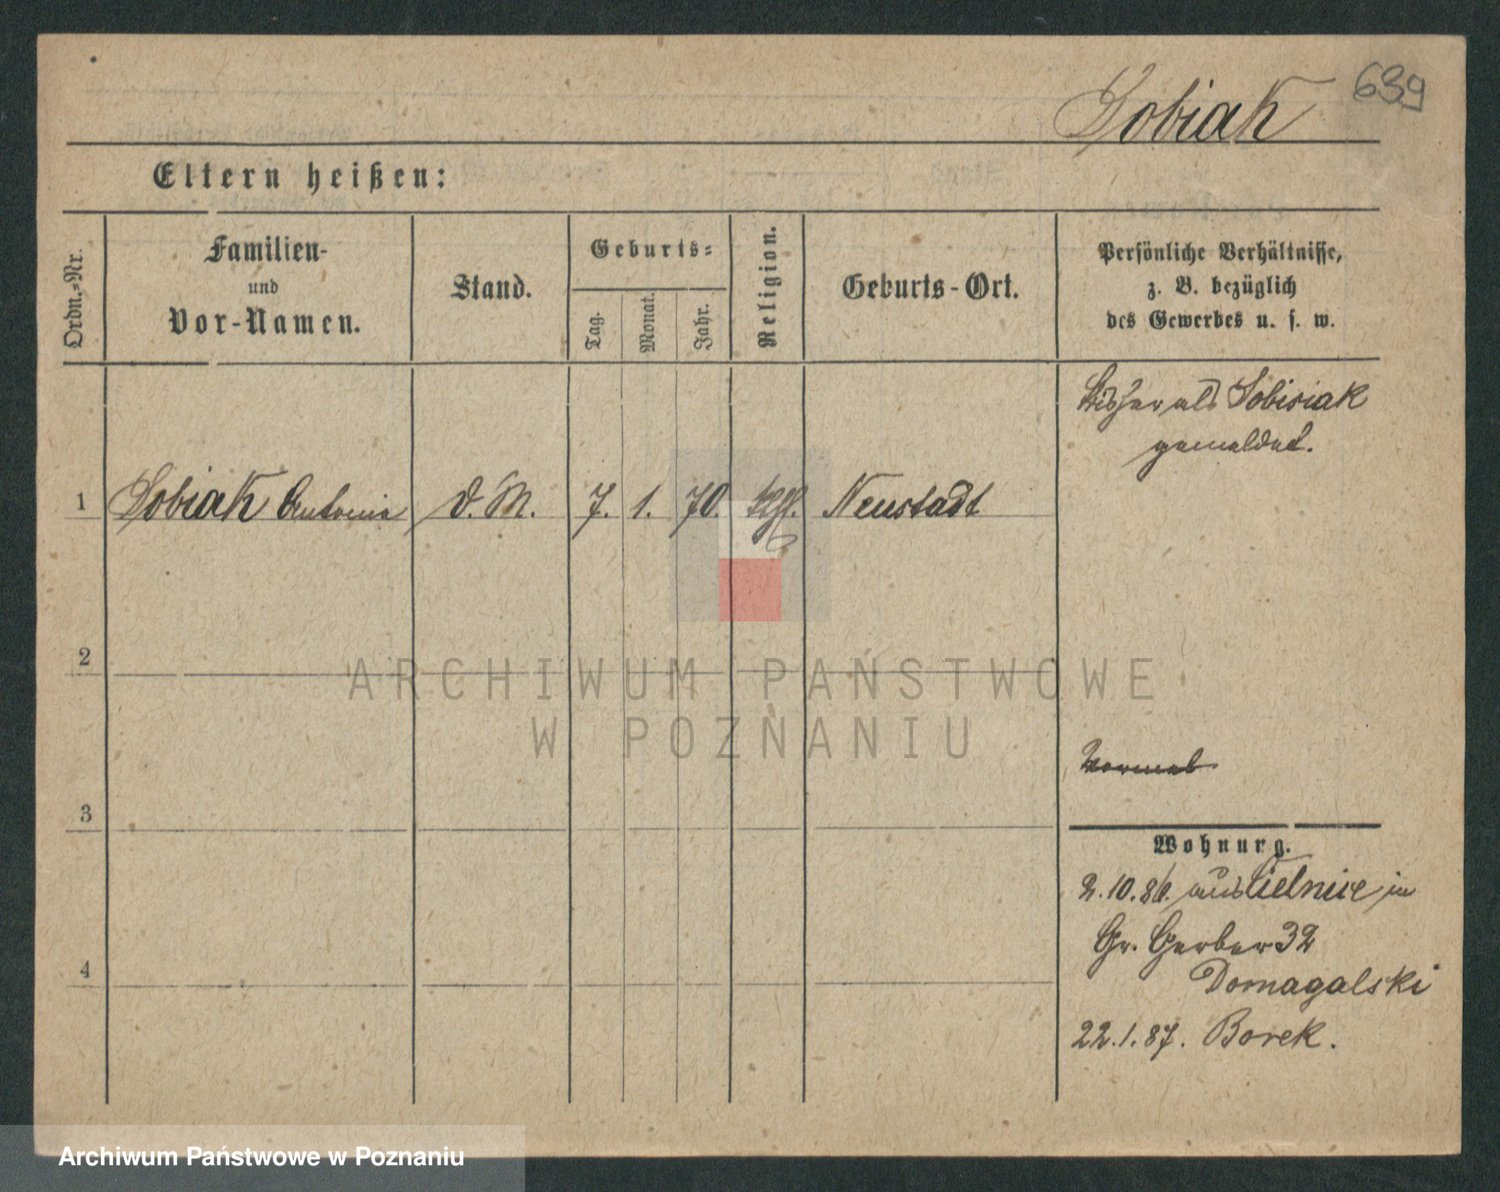 639
Sobiak
Eltern heißen:
Ordn.-Nr.
Familien-
und
Vor-Namen.
Stand.
Geburts-
Tag.
Monat.
Jahr.
Religion.
Geburts-Ort.
Persönliche Verhältnisse,
z. B. bezüglich
des Gewerbes u. s. w.
Bisher als Sobisiak
gemeldet.
1 Sobiak Antonie D. M. 7. 1. 70. Neustadt
2
3
4
ARCHIWUM PAŃSTWOWE
W POZNANIU
Wohnung.
2.10.86. aus Cielnice in
Gr. Gerber 32
Domagalski
22.1.87. Borek.
Archiwum Państwowe w Poznaniu